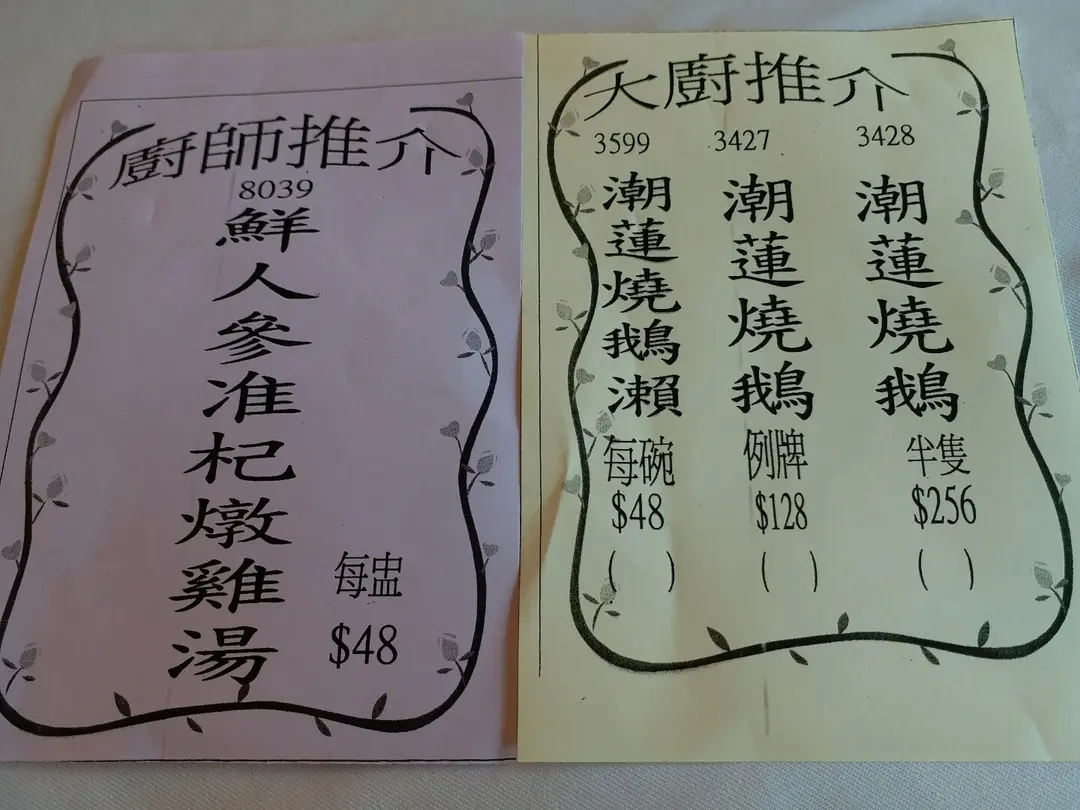 廚師推介
8039
鮮人參准杞燉雞湯
每盅
$48
大廚推介
3599
潮蓮燒鵝瀨
每碗
$48
( )
3427
潮蓮燒鵝
例牌
$128
( )
3428
潮蓮燒鵝
半隻
$256
( )